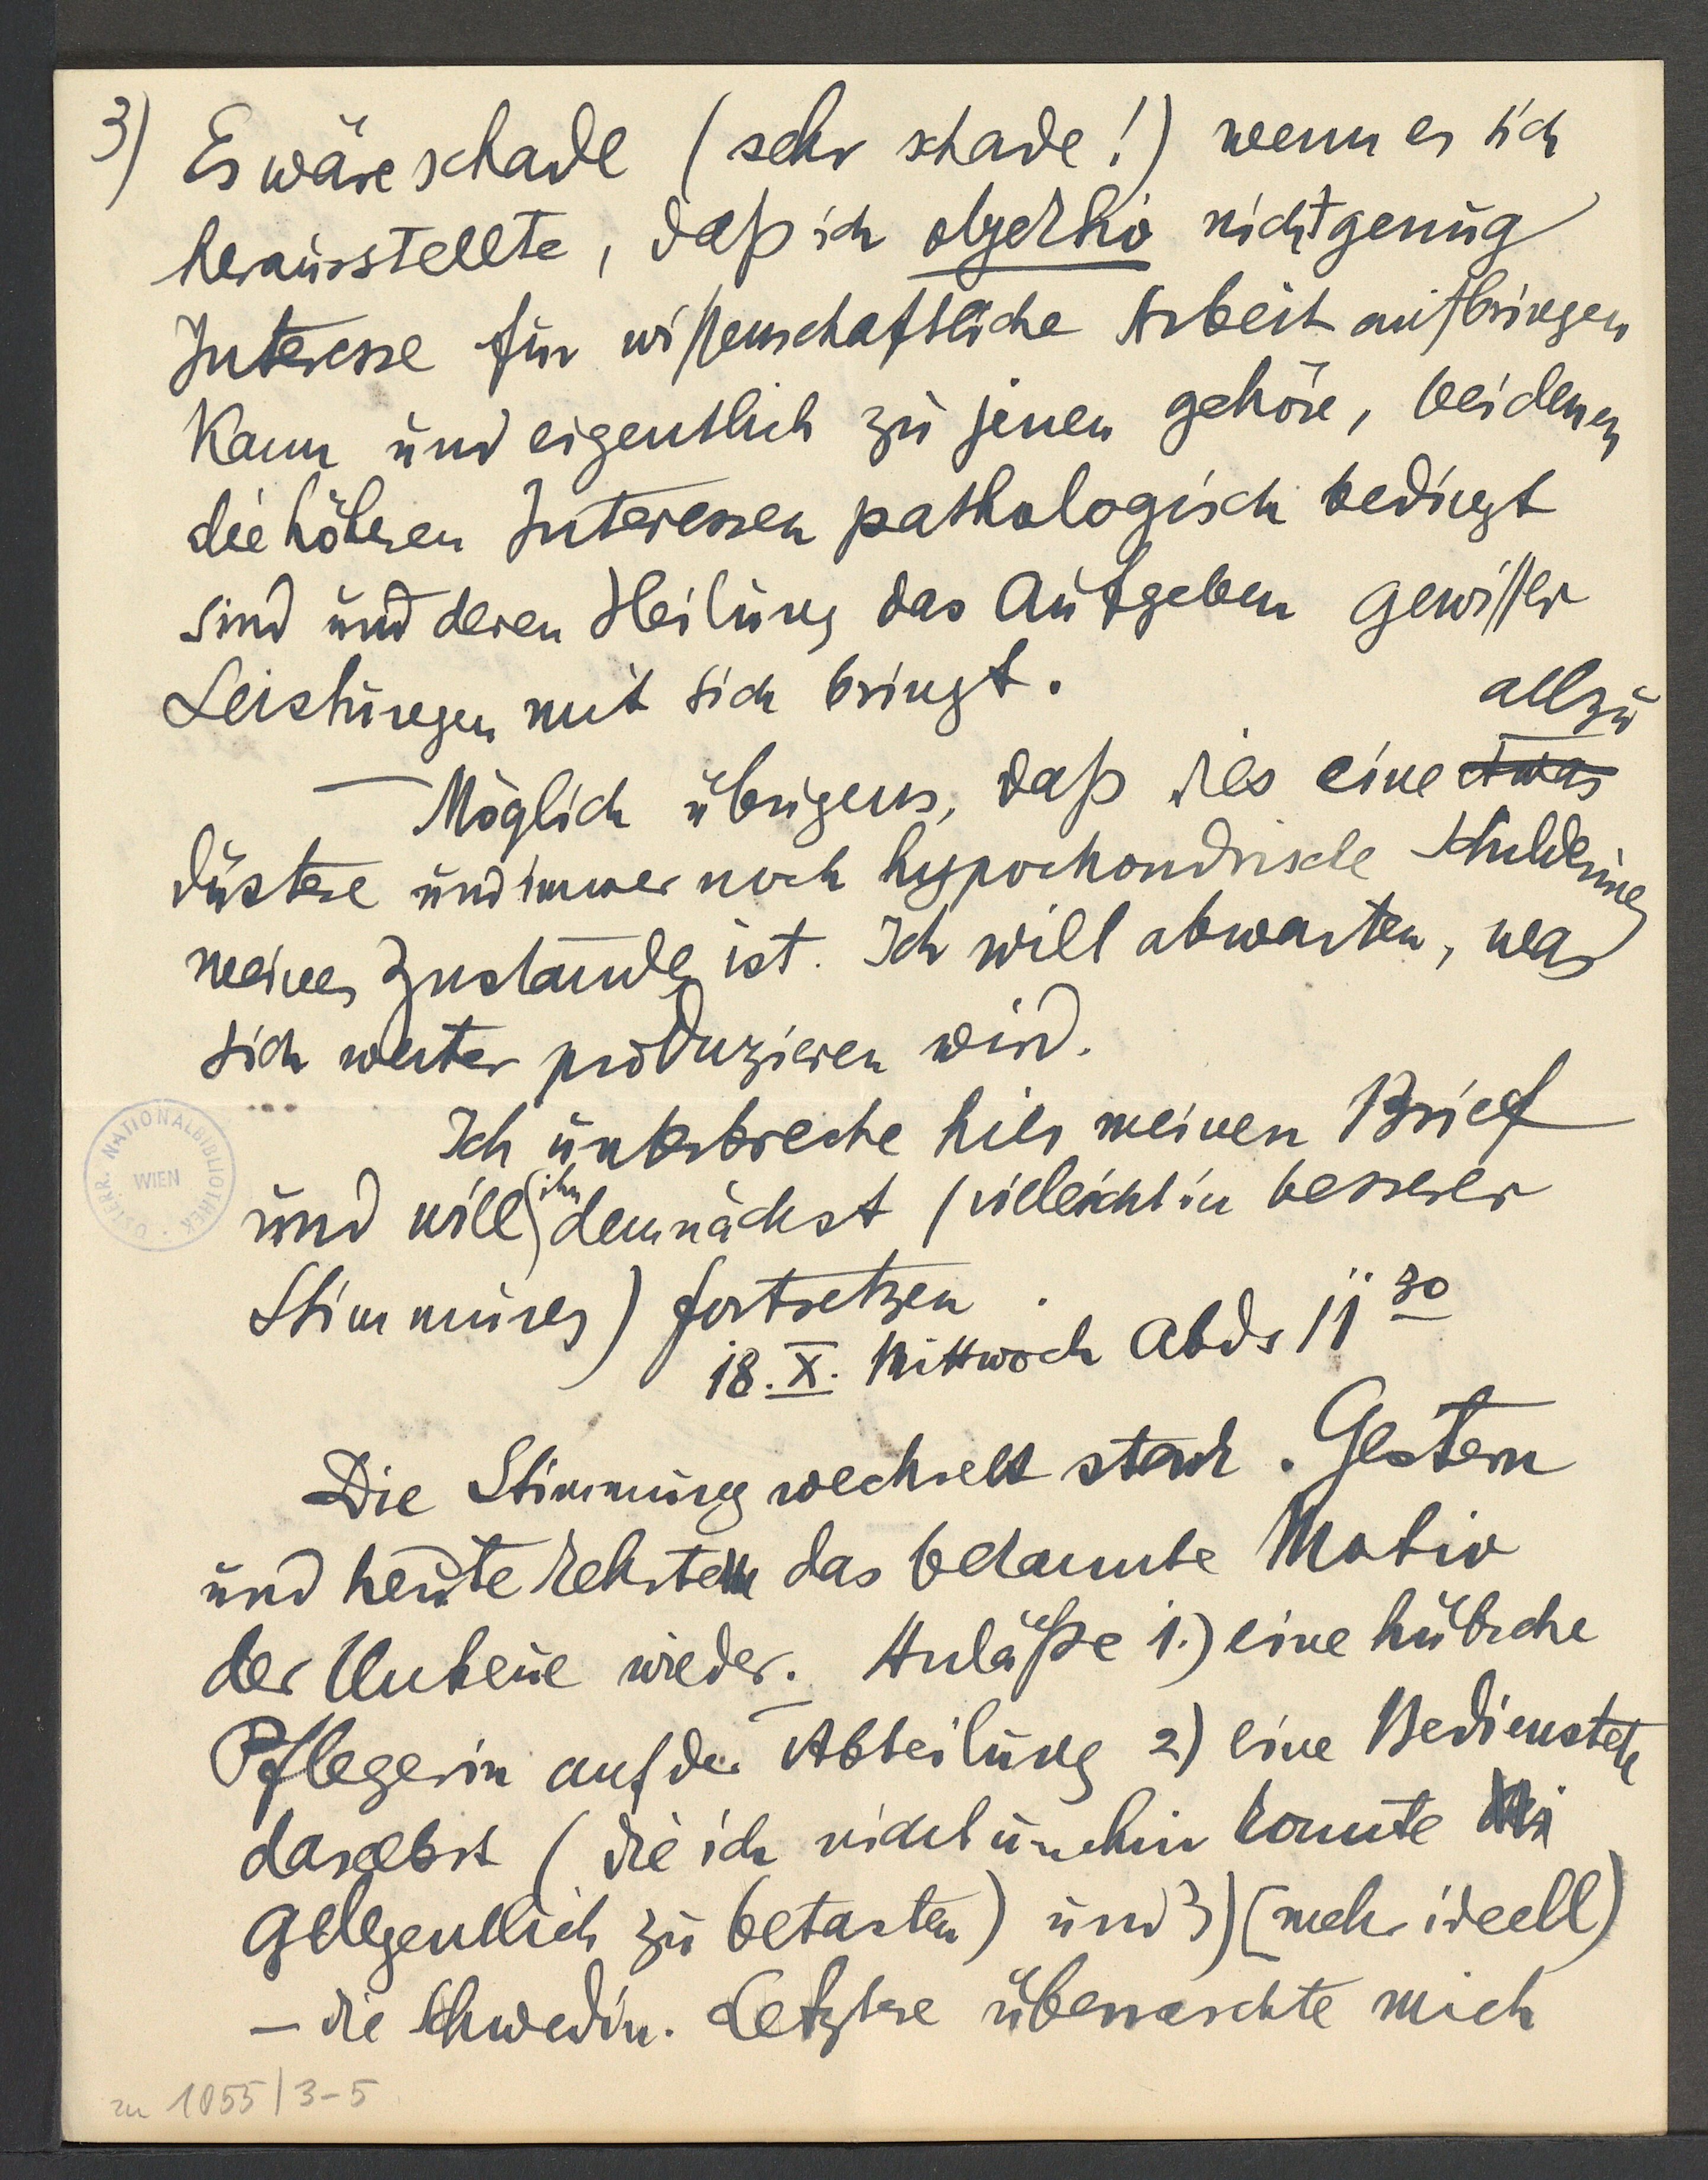 3) Es wäre schade (sehr schade!) wenn es sich
herausstellte, daß ich objektiv nicht genug
Interesse für wißenschaftliche Arbeit aufbringen
kann und eigentlich zu jenen gehöre, bei denen
die höheren Interessen pathologisch bedingt
sind und deren Heilung das Aufgeben gewißer
Leistungen mit sich bringt.
allzu
— Möglich übrigens, daß dies eine etwas
düstere und immer noch hypochondrische Schilderung
meines Zustandes ist. Ich will abwarten, was
sich weiter produzieren wird.
Ich unterbreche hier meinen Brief
ihn
und will demnächst (vielleicht in besserer
Stimmung) fortsetzen.
18. X. Mittwoch Abds 11 30
Die Stimmung wechselt stark. Gestern
und heute kehrte das bekannte Motiv
der Untreue wieder. Anläße 1.) eine hübsche
Pflegerin auf der Abteilung 2) eine Bedienstete
daselbst (die ich nicht umhin konnte
gelegentlich zu betasten) und 3) (mehr ideell)
— die Schwedin. Letztere überraschte mich
ÖSTERR. NATIONALBIBLIOTHEK
WIEN
zu 1055/3-5